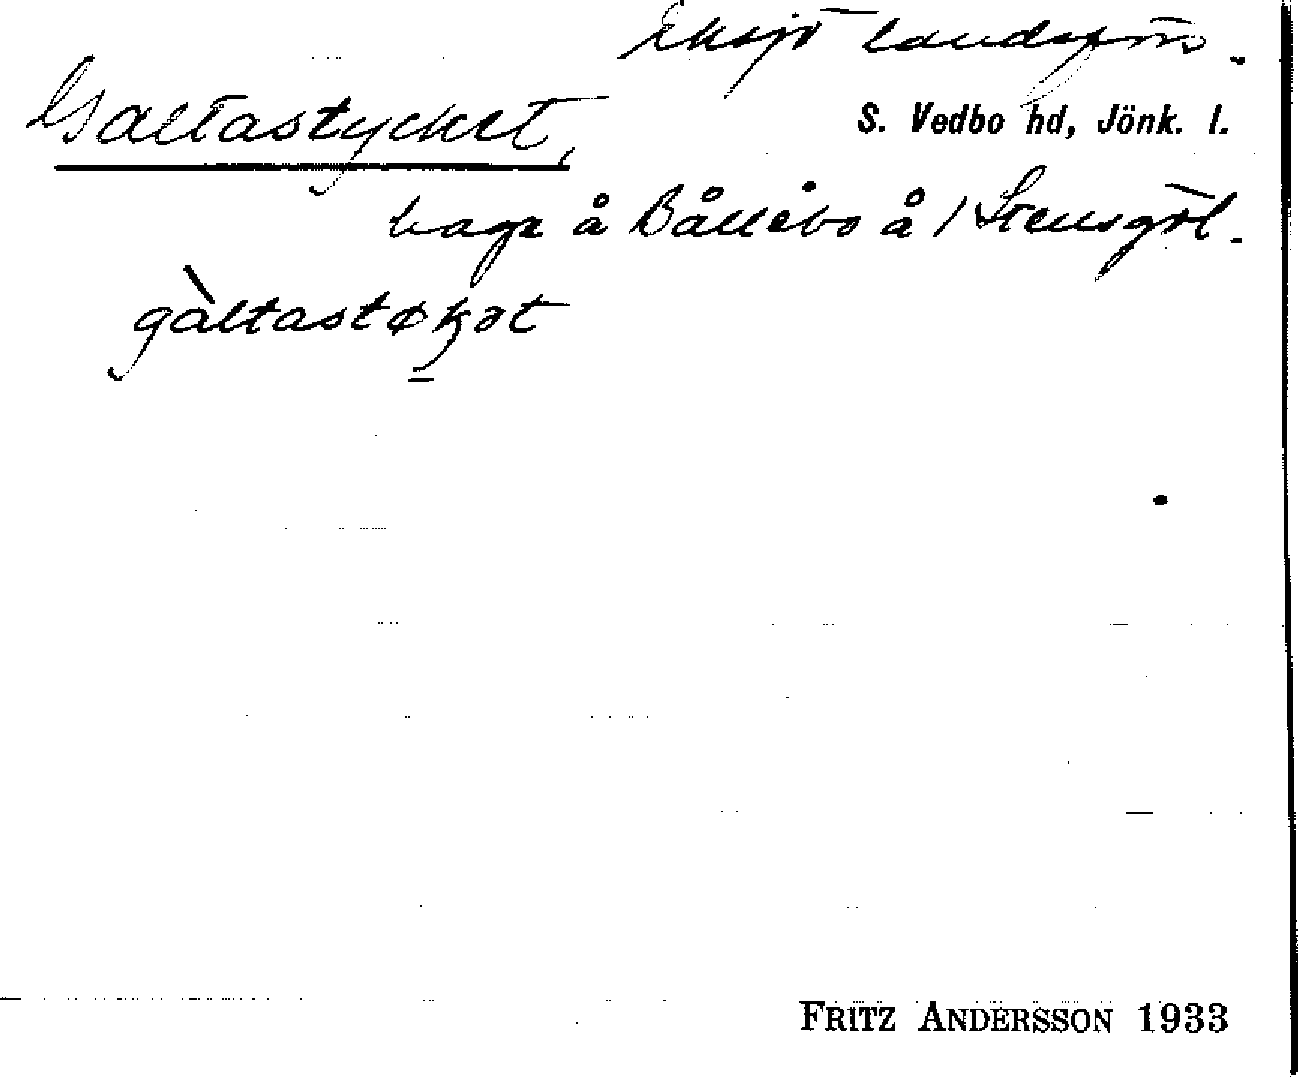 Eksjö landsförs.
Galtastycket,
S. Vedbo hd, Jönk. l.
hage å Bållebo å / Stensgöl.
gàltastøkət
FRITZ ANDERSSON 1933